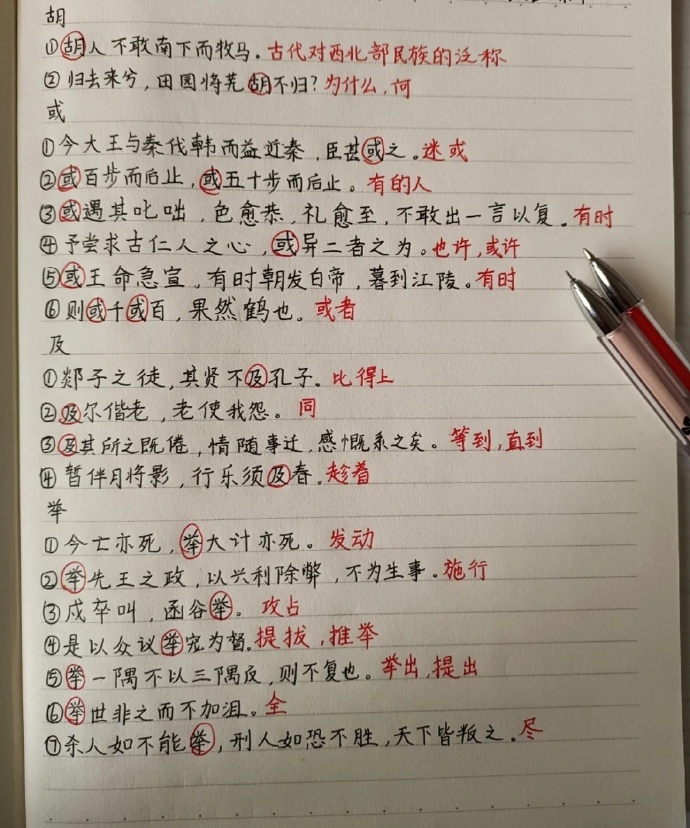 胡
①胡人不敢南下而牧马。古代对西北部民族的泛称
②归去来兮，田园将芜胡不归？为什么，何
或
①今大王与秦伐韩而益近秦，臣甚或之。迷或
②或百步而后止，或五十步而后止。有的人
③或遇其叱咄，色愈恭，礼愈至，不敢出一言以复。有时
④予尝求古仁人之心，或异二者之为。也许，或许
⑤或王命急宣，有时朝发白帝，暮到江陵。有时
⑥则或千或百，果然鹤也。或者
及
①郯子之徒，其贤不及孔子。比得上
②及尔偕老，老使我怨。同
③及其所之既倦，情随事迁，感慨系之矣。等到，直到
④暂伴月将影，行乐须及春。趁着
举
①今亡亦死，举大计亦死。发动
②举先王之政，以兴利除弊，不为生事。施行
③戍卒叫，函谷举。攻占
④是以众议举宠为督。提拔，推举
⑤举一隅不以三隅反，则不复也。举出，提出
⑥举世非之而不加沮。全
⑦杀人如不能举，刑人如恐不胜，天下皆叛之。尽